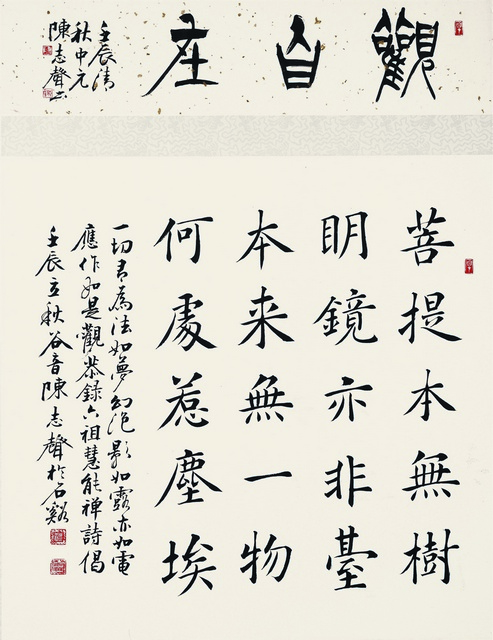 觀自在
壬辰清
秋中元
陳志聲
菩提本無樹
眀鏡亦非臺
本来無一物
何處惹塵埃
一切有為法如夢幻泡影如露亦如電
應作如是觀恭錄六祖慧能禅詩偈
壬辰立秋谷音陳志聲於石谿